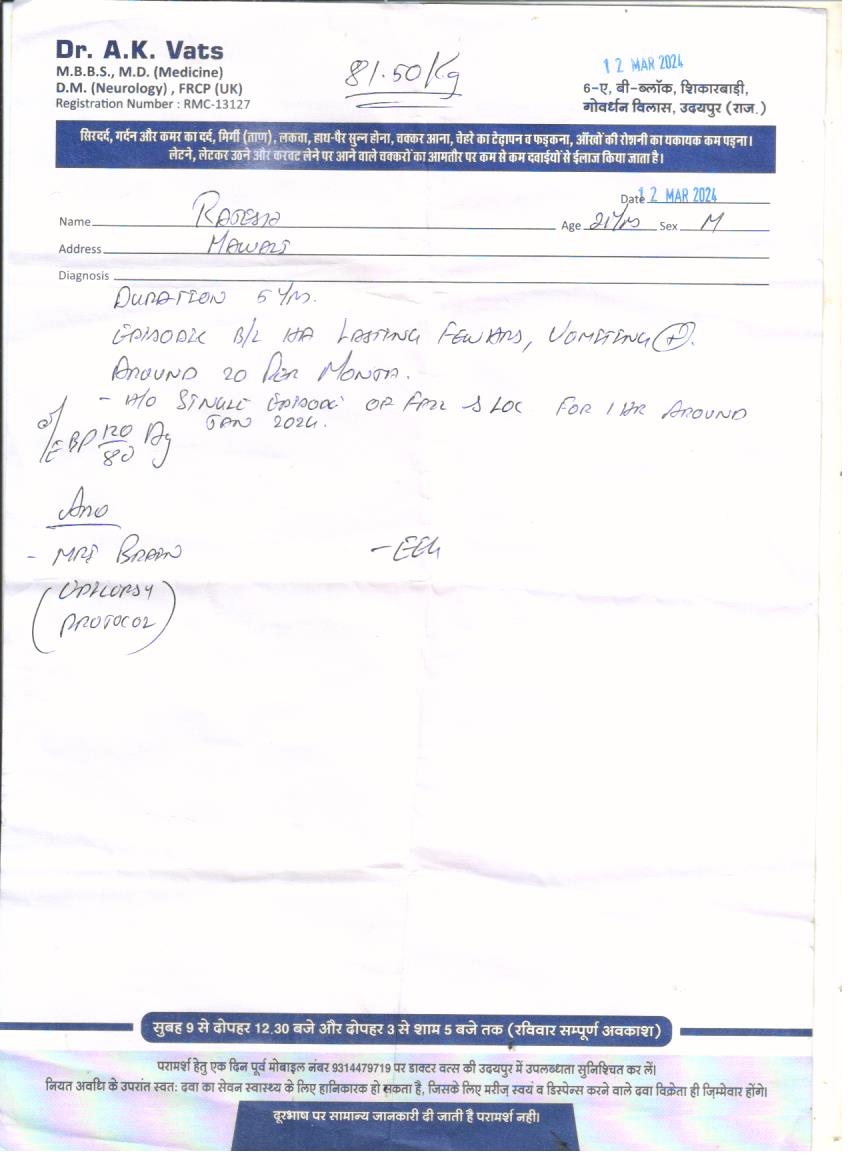 Dr. A.K. Vats
M.B.B.S., M.D. (Medicine)
D.M. (Neurology) , FRCP (UK)
Registration Number : RMC-13127
81.50 Kg
12 MAR 2024
6-ए, बी-ब्लॉक, शिकारबाड़ी,
गोवर्धन विलास, उदयपुर (राज.)
सिरदर्द, गर्दन और कमर का दर्द, मिर्गी (ताण), लकवा, हाथ-पैर सुन्न होना, चक्कर आना, चेहरे का टेढ़ापन व फड़कना, आँखों की रोशनी का यकायक कम पड़ना।
लेटने, लेटकर उठने और करवट लेने पर आने वाले चक्करों का आमतौर पर कम से कम दवाईयों से ईलाज किया जाता है।
Date 12 MAR 2024
Name RAJESH Age 21 Yrs Sex M
Address MAWALI
Diagnosis
DURATION 5 Yrs.
EPISODIC B/L HA LASTING FEW HRS, VOMITING (+).
AROUND 20 PER MONTH.
- H/O SINGLE EPISODE OF FALL S LOC FOR 1 HR AROUND
JAN 2024.
O/E BP 120/80
- MRI BRAIN - EEG
(EPILEPSY
PROTOCOL)
सुबह 9 से दोपहर 12.30 बजे और दोपहर 3 से शाम 5 बजे तक (रविवार सम्पूर्ण अवकाश)
परामर्श हेतु एक दिन पूर्व मोबाइल नंबर 9314479719 पर डाक्टर वत्स की उदयपुर में उपलब्धता सुनिश्चित कर लें।
नियत अवधि के उपरांत स्वतः दवा का सेवन स्वास्थ्य के लिए हानिकारक हो सकता है, जिसके लिए मरीज़ स्वयं व डिस्पेन्स करने वाले दवा विक्रेता ही ज़िम्मेवार होंगे।
दूरभाष पर सामान्य जानकारी दी जाती है परामर्श नहीं।